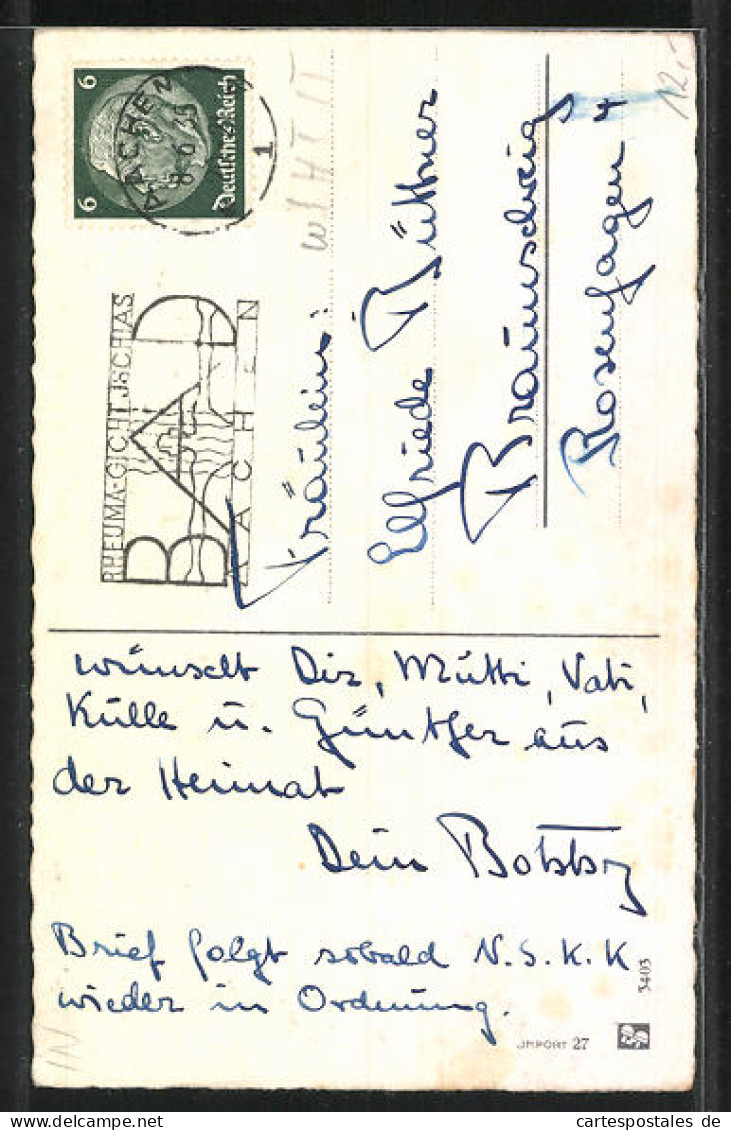 12.-
6
6
Deutsches Reich
AACHEN
1
RHEUMA-GICHT-ISCHIAS
BAD
AACHEN
Fräulein:
Elfriede Büttner
Braunschweig
Rosenhagen 4
wünscht Dir, Mutti, Vati,
Külle u. Günther aus
der Heimat
Dein Bobby
Brief folgt sobald N.S.K.K
wieder in Ordnung.
3403
IMPORT 27
IN
cartespostales de